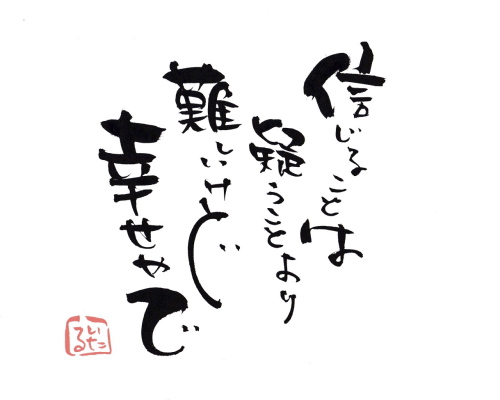 信じることは
疑うことより
難しいけど
幸せやで